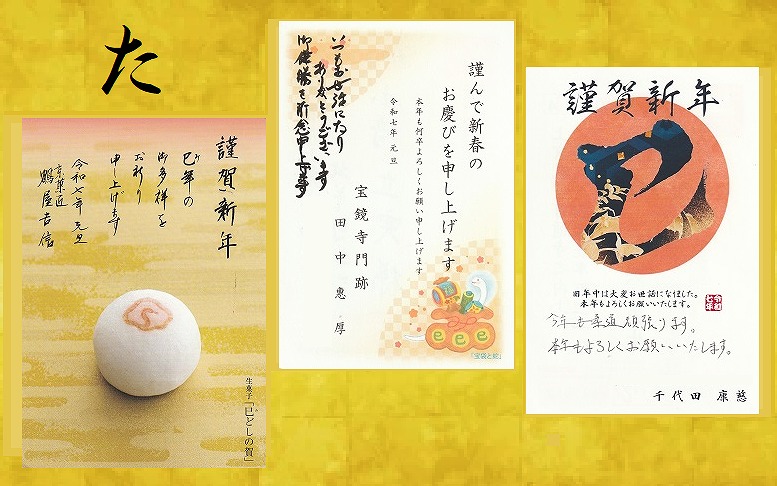 た
謹賀新年
巳年の
御多祥を
お祈り
申し上げます
令和七年 元旦
京菓匠
鶴屋吉信
生菓子「巳どしの賀」
謹んで新春の
お慶びを申し上げます
本年も何卒よろしくお願い申し上げます
令和七年 元旦
いつもお世話になり
ありがとうございます
御健勝を祈念申し上げます
宝鏡寺門跡
田中 惠厚
巳 巳 巳
「宝袋と蛇」
謹賀新年
巳
旧年中は大変お世話になりました。
本年もよろしくお願いいたします。
令和
七年
今年も柔道頑張ります。
本年もよろしくお願いいたします。
千代田 康慈